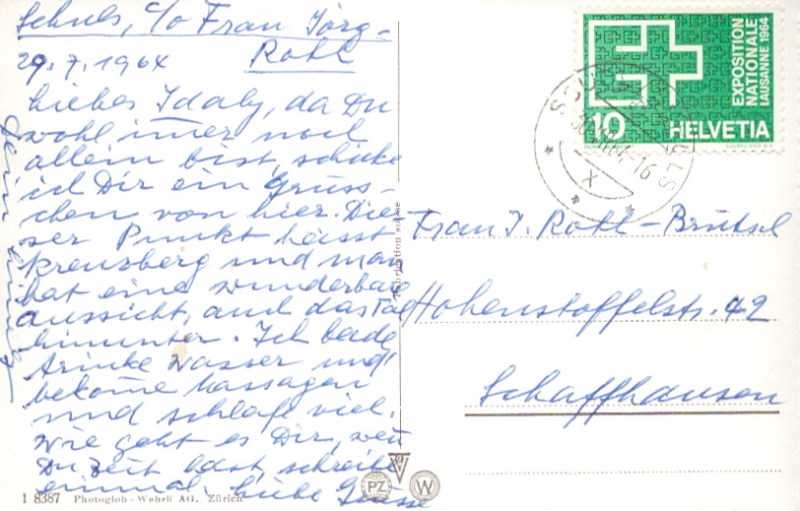 Schuls, c/o Frau Jörg-
Roth
29.7.1964
Liebes Idaly, da Du
wohl imer noch
allein bist, schicke
ich Dir ein Grüss-
chen von hier. Die-
ser Punkt heisst
Kreuzberg und man
hat eine wunderbare
Aussicht, auch das Tal
hinunter. Ich bade,
trinke Wasser und
bekome Massagen
und schlafe viel.
Wie geht es Dir, wen
Du Zeit hast, schreibe
einmal, Liebe Grüsse
1 8387 Photoglob-Wehrli AG. Zürich
PZ W
suisse
EXPOSITION
NATIONALE
LAUSANNE 1964
10 HELVETIA
Frau I. Roth-Brütsch
Hohenstoffelstr. 42
Schaffhausen